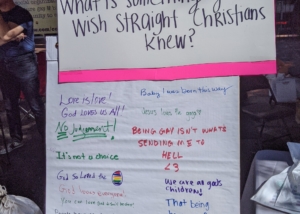 What is something
wish STRaight Christians
knew?
Love is love!
God loves us All!
No Judgement!
It's not a choice
God so loved the
Baby I was born this way
Jesus
BEING GAY ISN'T WHAT'S
SENDING ME TO
HELL
<3
We are all god's
children!
That being